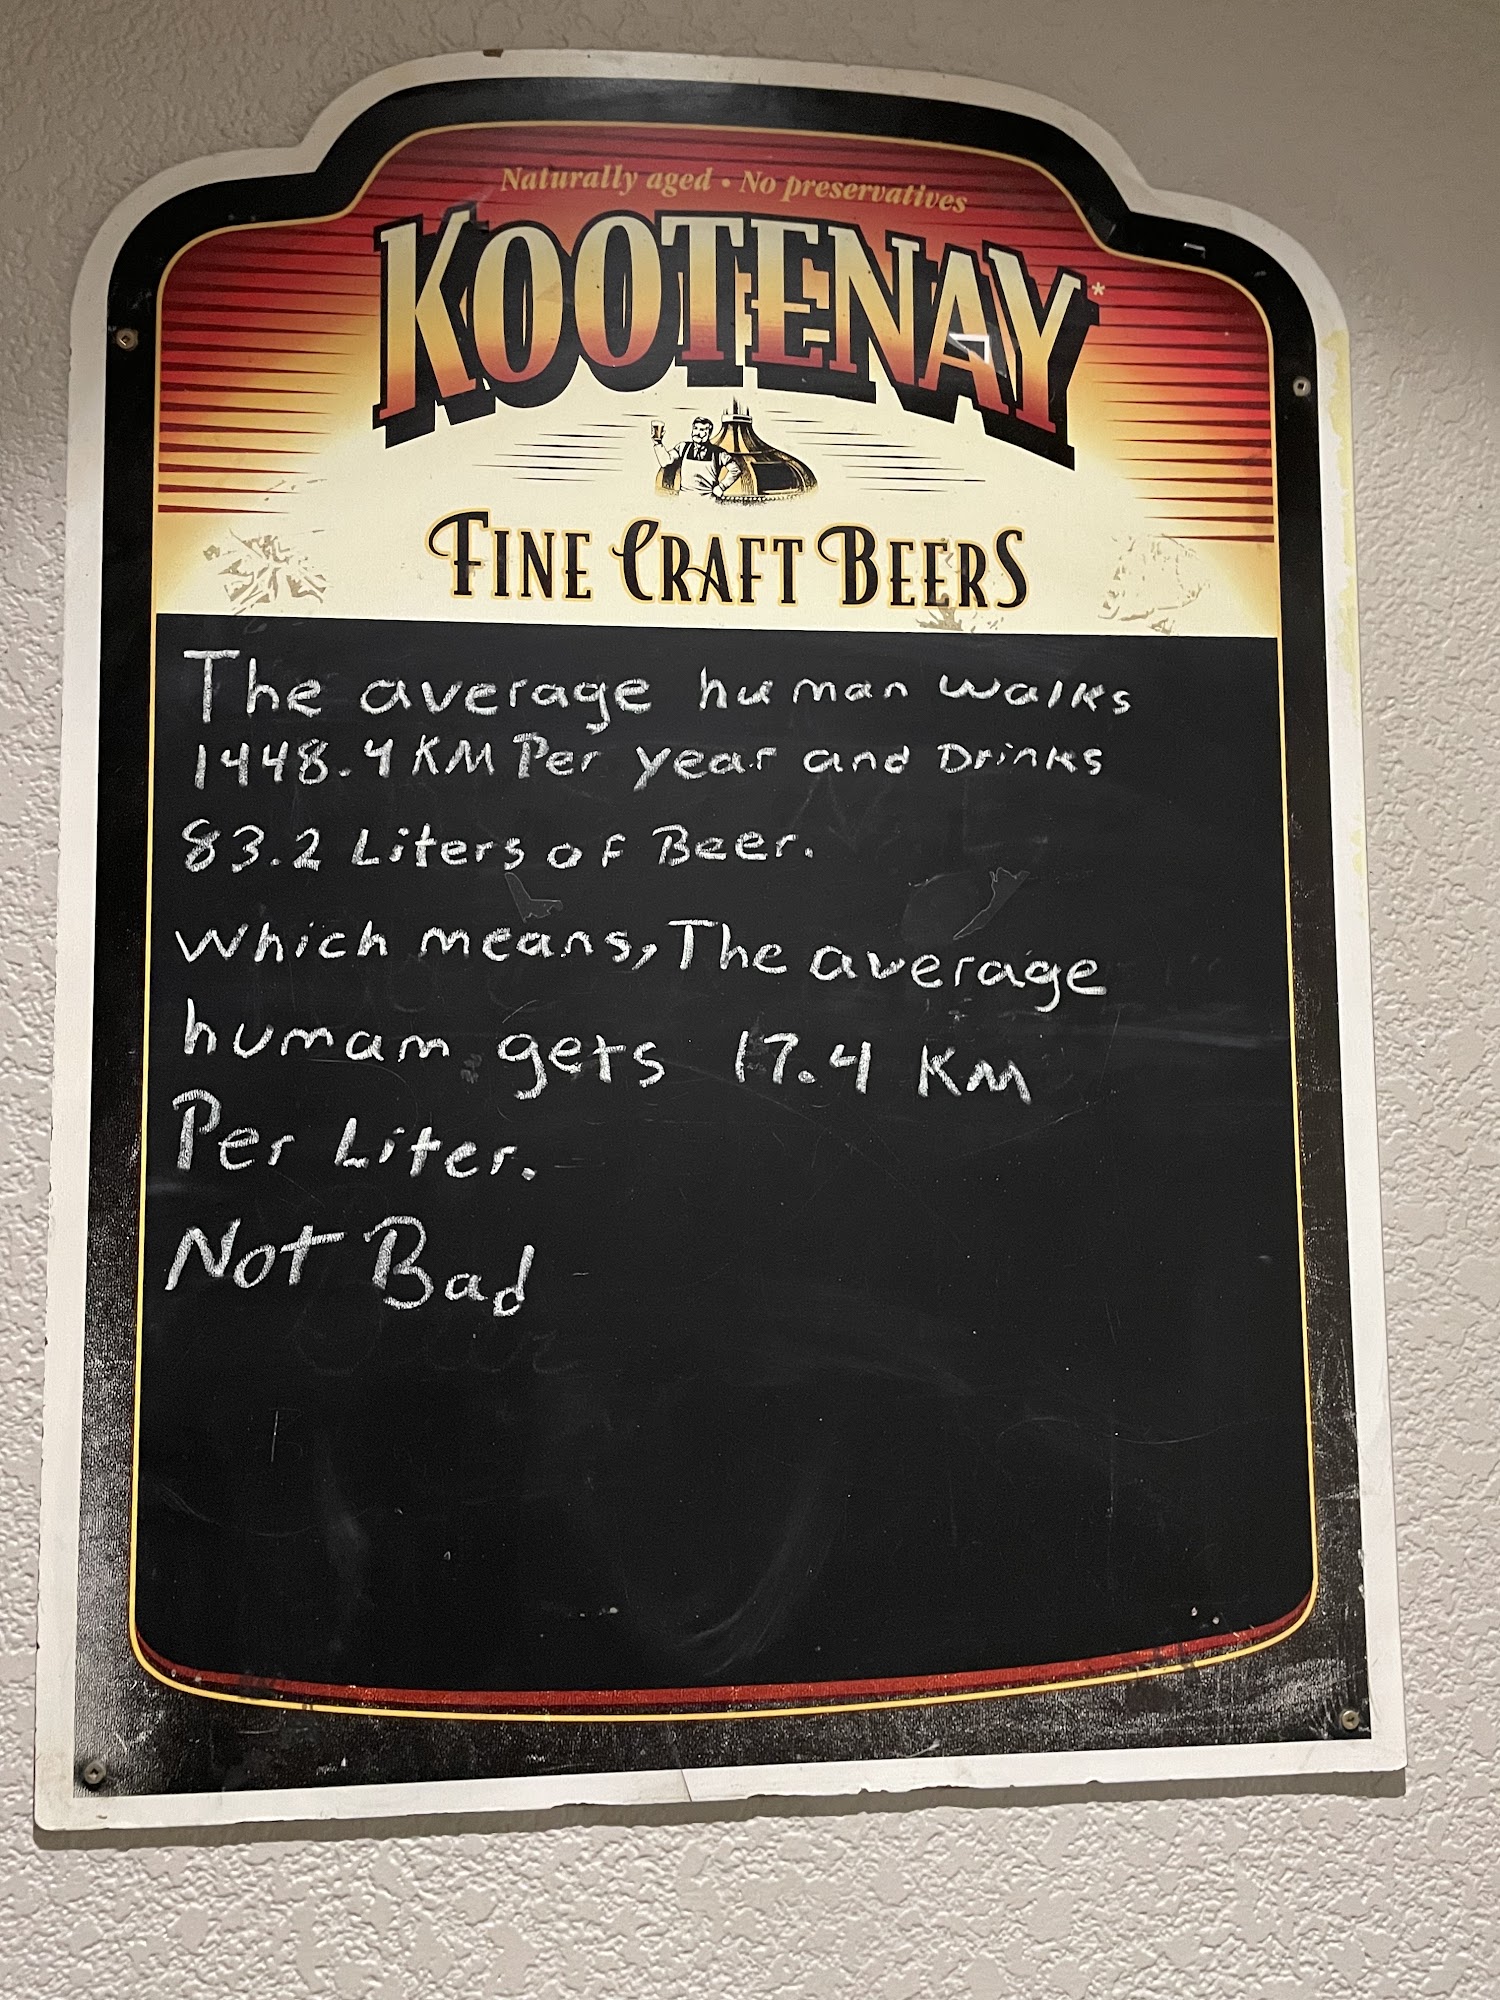 Naturally aged • No preservatives
KOOTENAY*
FINE CRAFT BEERS
The average human walks
1448.4 KM Per year and Drinks
83.2 Liters of Beer.
Which means, The average
humam gets 17.4 KM
Per Liter.
Not Bad